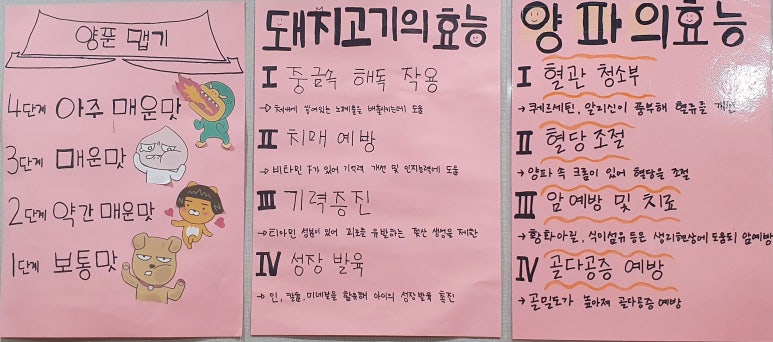 양푼 맵기
4단계 아주 매운맛
3단계 매운맛
2단계 약간 매운맛
1단계 보통맛
돼지고기의효능
I 중금속 해독 작용
→ 체내에 쌓여있는 노폐물을 배출하는데 도움
II 치매 예방
→ 비타민 F가 있어 기억력 개선 및 인지능력에 도움
III 기력증진
→ 티아민 성분이 있어 피로를 유발하는 젖산 생성을 제한
IV 성장 발육
→ 인, 칼슘, 미네랄을 함유해 아이의 성장발육 촉진
양파의효능
I 혈관 청소부
→ 퀘르세틴, 알리신이 풍부해 혈류를
II 혈당 조절
→ 양파 속 크롬이 있어 혈당을 조절
III 암예방 및 치료
→ 황화아릴, 식이섬유 등은 생리현상에 도움되 암예방
IV 골다공증 예방
→ 골밀도가 높아져 골다공증 예방